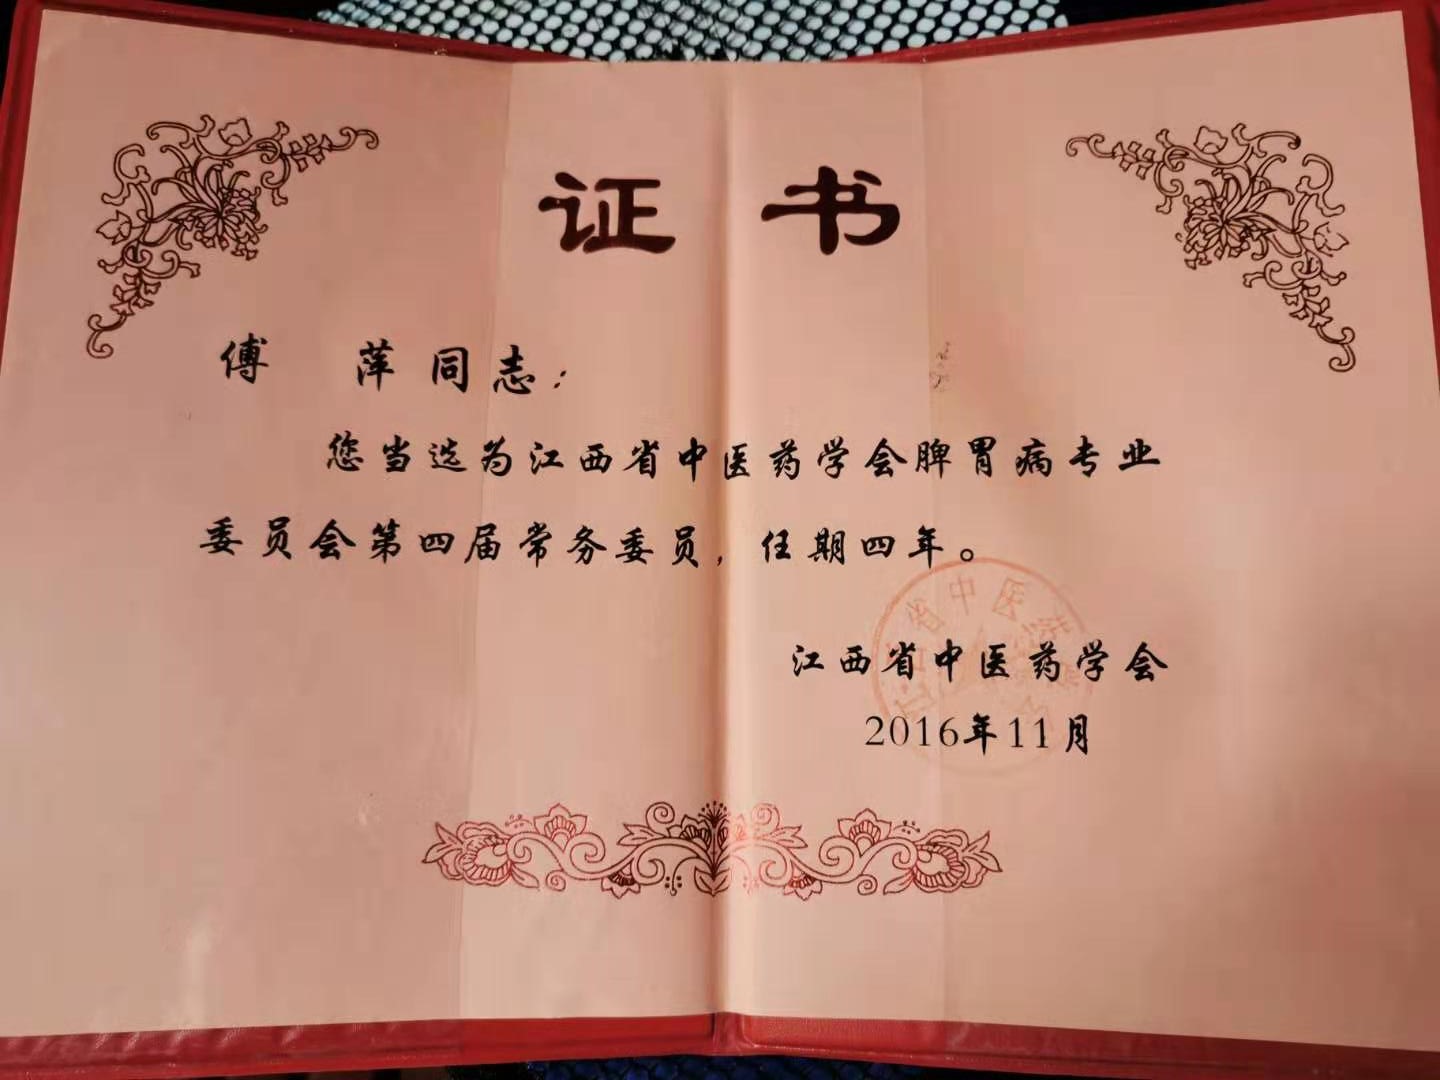 证书
傅 萍同志：
您当选为江西省中医药学会脾胃病专业
委员会第四届常务委员，任期四年。
省中医药
江西省中医药学会
2016年11月